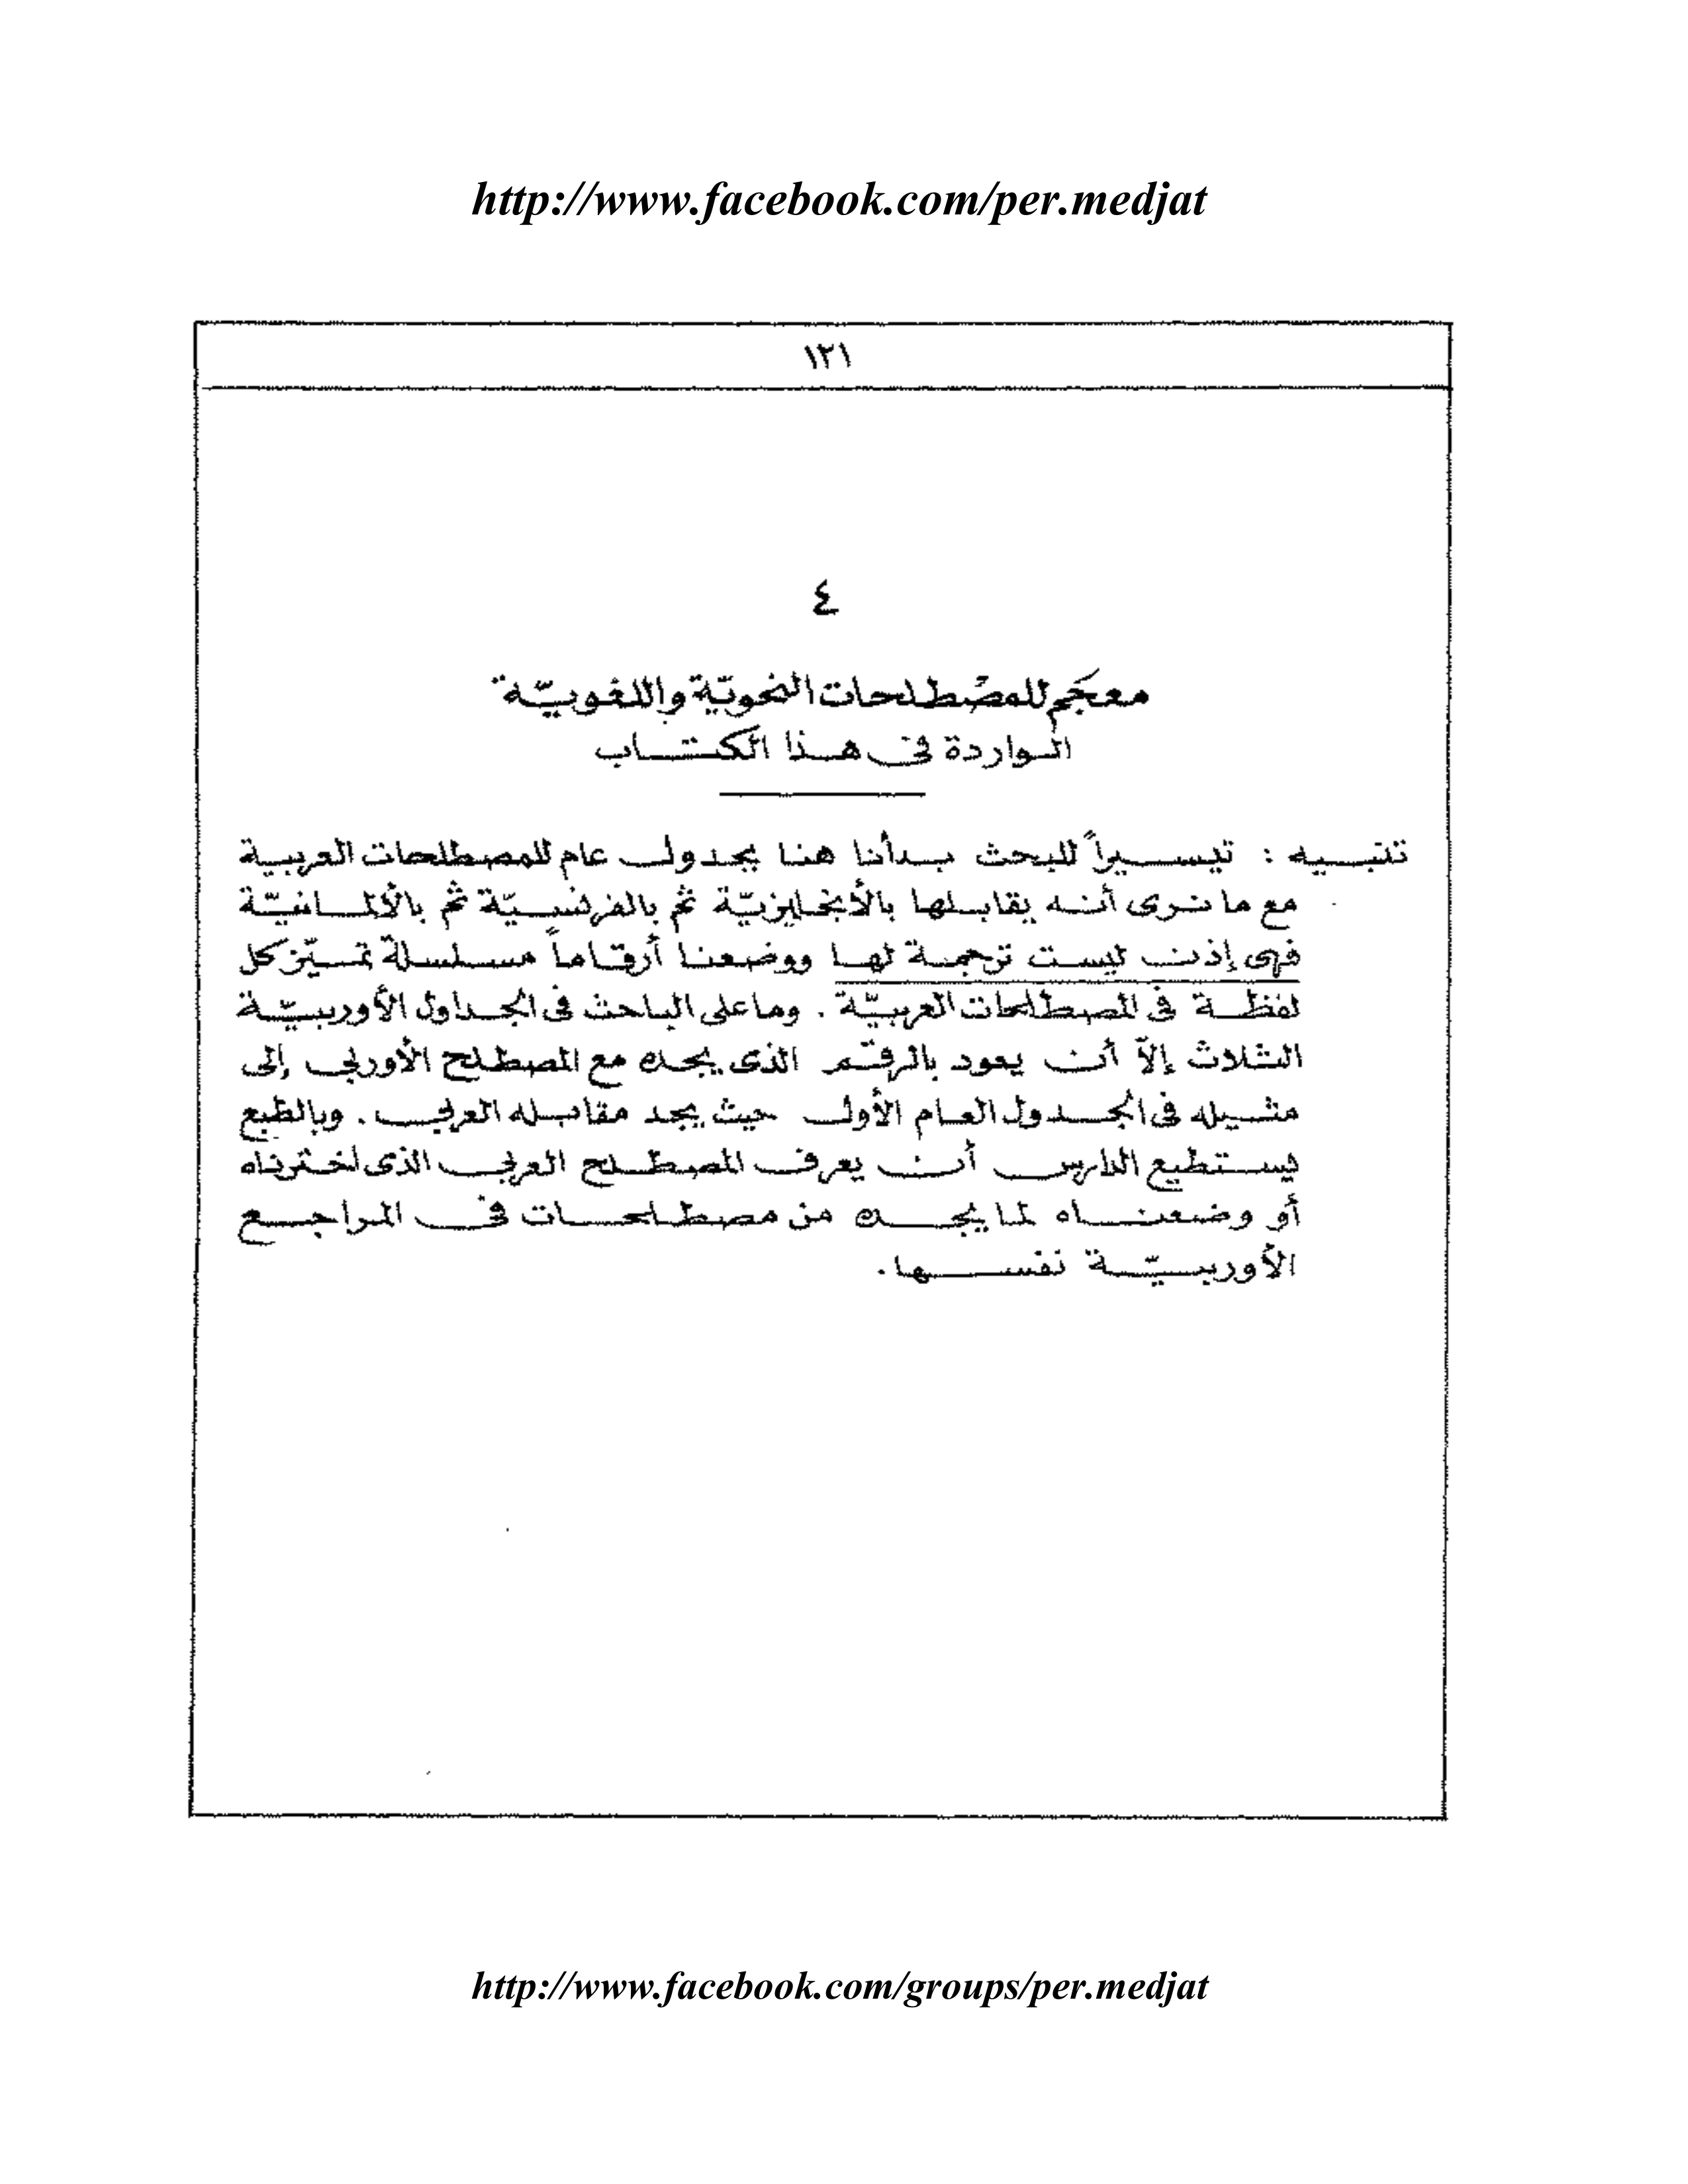 http://www.facebook.com/per.medjat
١٢١
٤
معجَم للمصْطلحات النحويّة واللغويّة
الواردة في هذا الكتاب
تنبيه : تيسيراً للبحث بدأنا هنا بجدول عام للمصطلحات العربية
مع ما نرى أنه يقابلها بالأنجليزيّة ثم بالفرنسيّة ثم بالألمانيّة
فهى إذن ليست ترجمة لها ووضعنا أرقاماً مسلسلة تميّز كل
لفظة فى المصطلحات العربيّة . وما على الباحث فى الجداول الأوربيّة
الثلاث إلاّ أن يعود بالرقم الذى يجده مع المصطلح الأوربى إلى
مثيله فى الجدول العام الأول حيث يجد مقابله العربى . وبالطبع
يستطيع الدارس أن يعرف المصطلح العربى الذى اخترناه
أو وضعناه لما يجده من مصطلحات فى المراجع
الأوربيّة نفسها .
http://www.facebook.com/groups/per.medjat